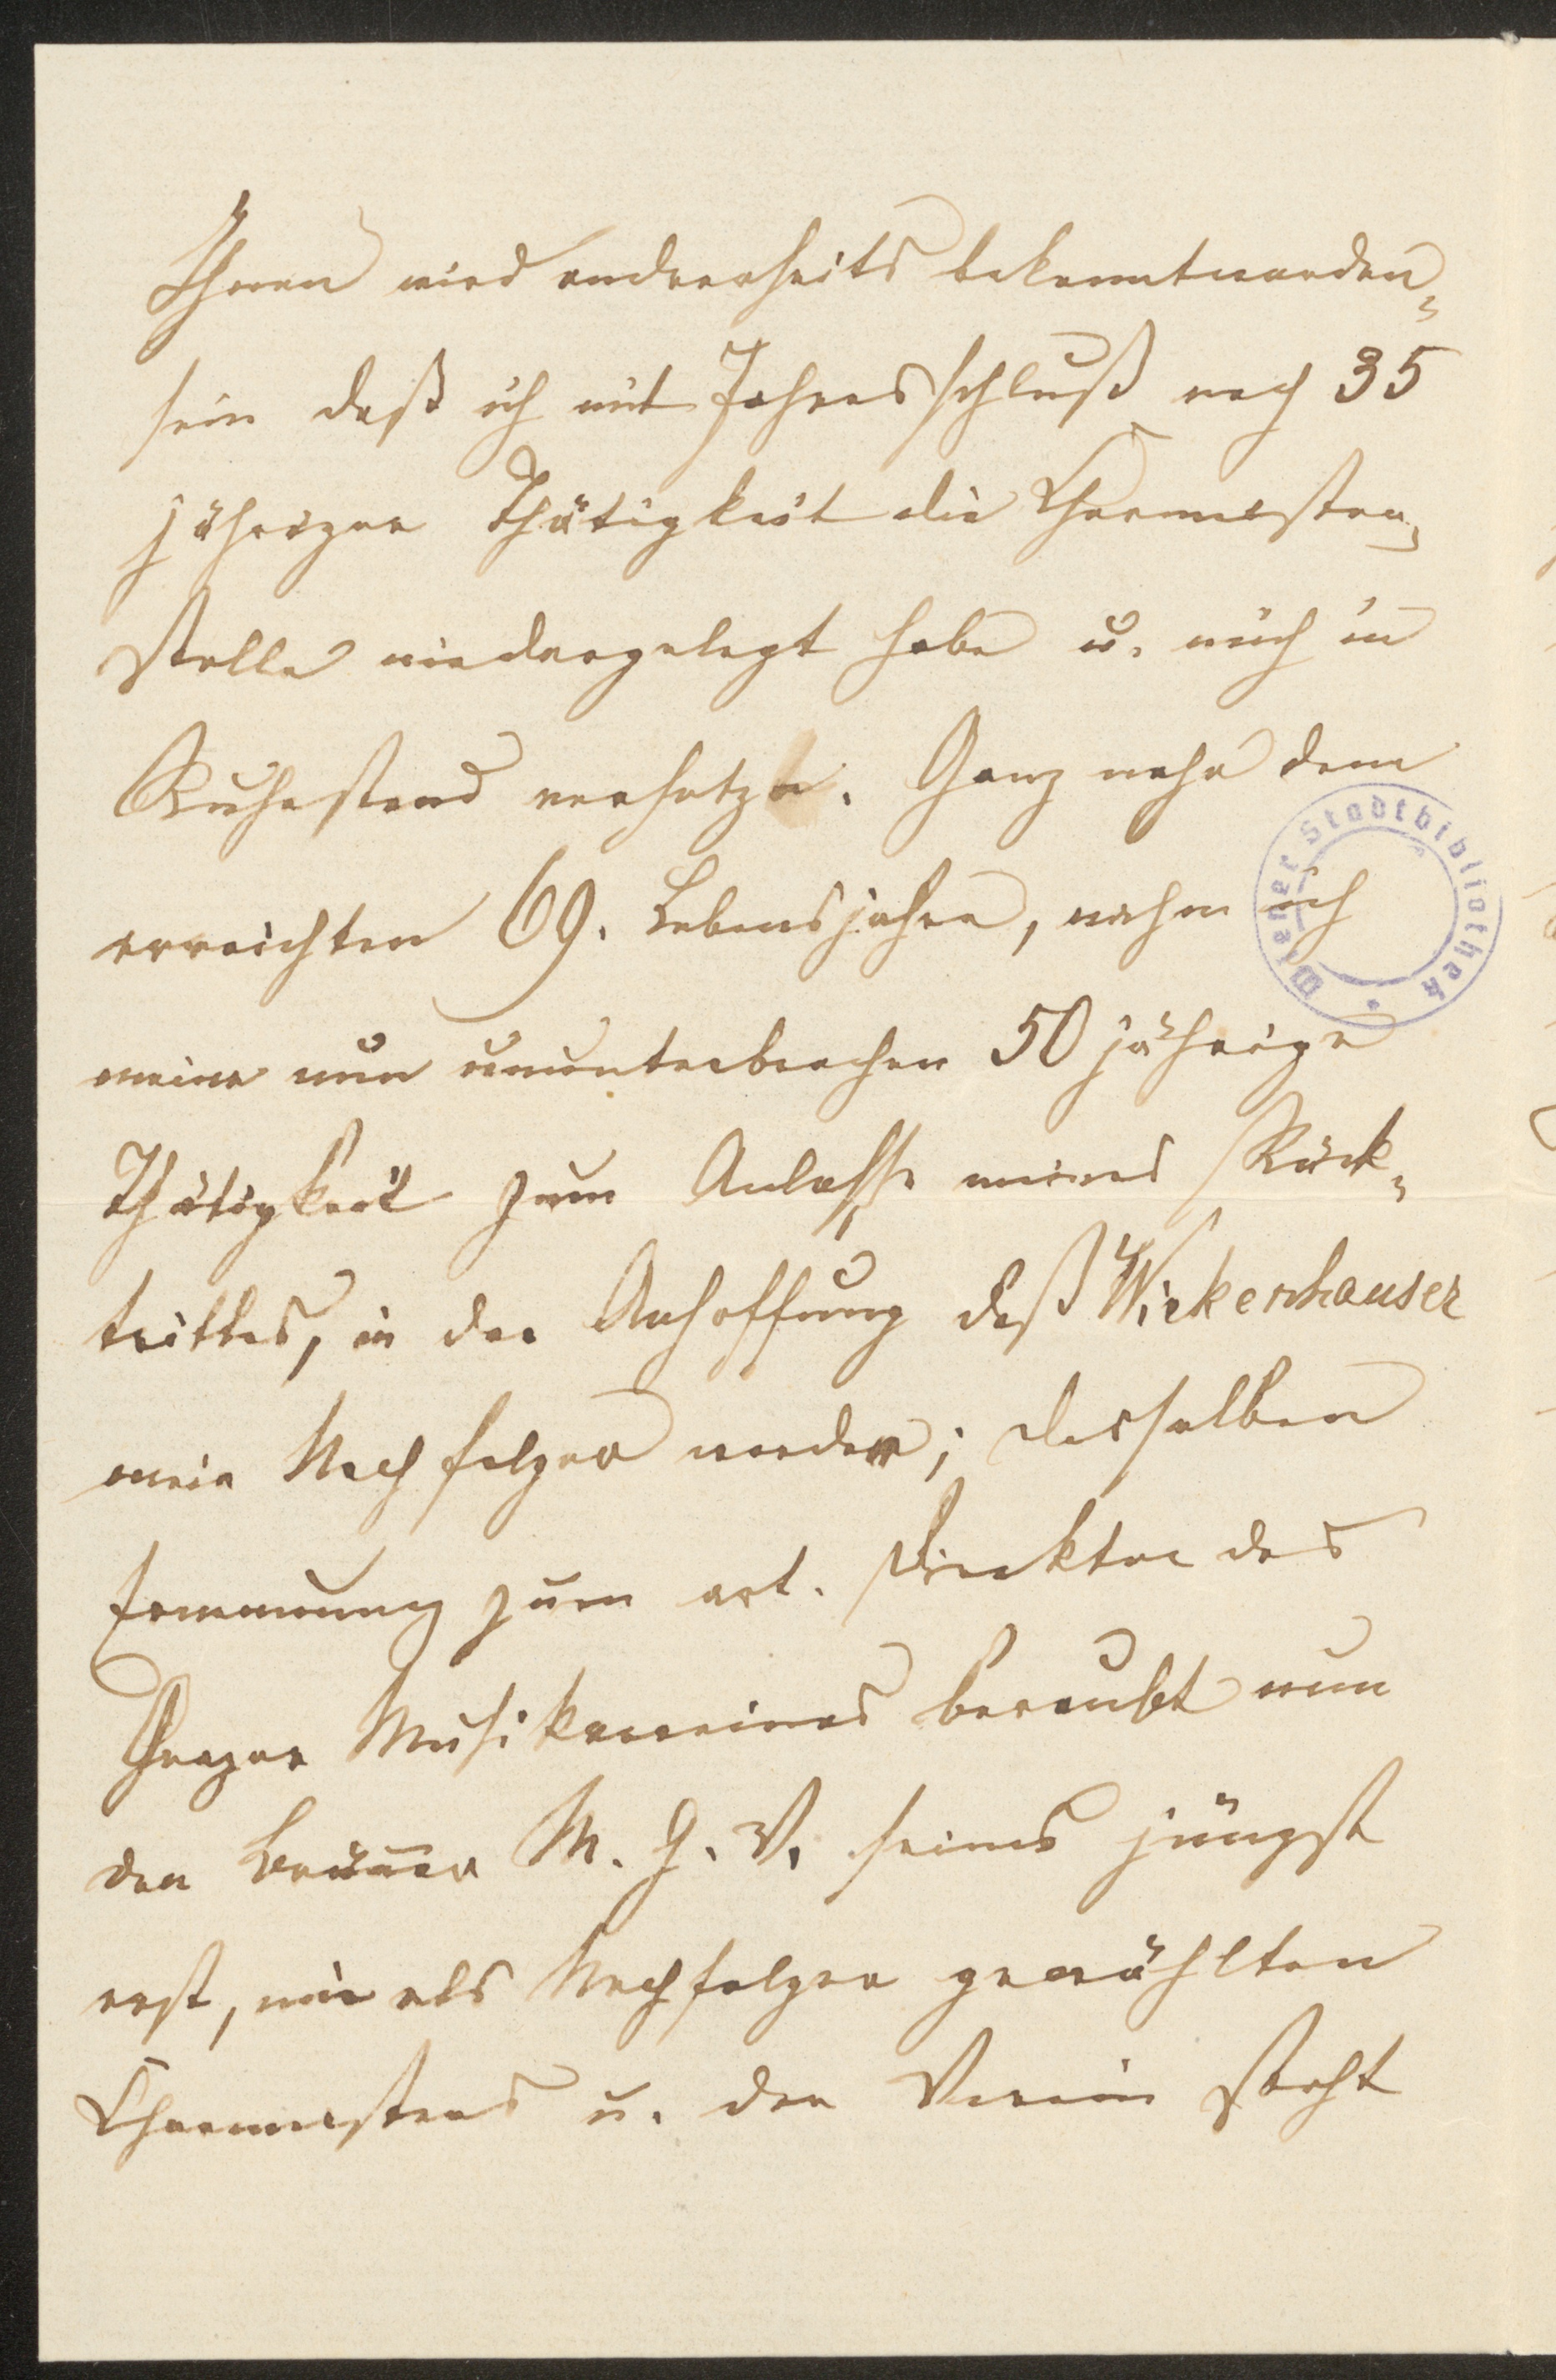 Ihnen wird anderseits bekanntworden
sein daß ich mit Jahresschluß nach 35
jähriger Thätigkeit die Chormeister
stelle niedergelegt habe u. mich in
Ruhestand versetzte. Ganz nahe dem
erreichten 69. Lebensjahre, nahm ich
meine nun ununterbrochen 50 jährige
Thätigkeit zum Anlasse meines Rück-
trittes, in der Anhoffung daß Wickenhauser
mein Nachfolger werde; desselben
Ernennung zum art. Direktor des
Grazer Musikvereines beraubt nun
den Brünner M. G. V. seines jüngst
erst, mir als Nachfolger gewählten
Chormeisters u. der Verein steht
Wiener Stadtbibliothek